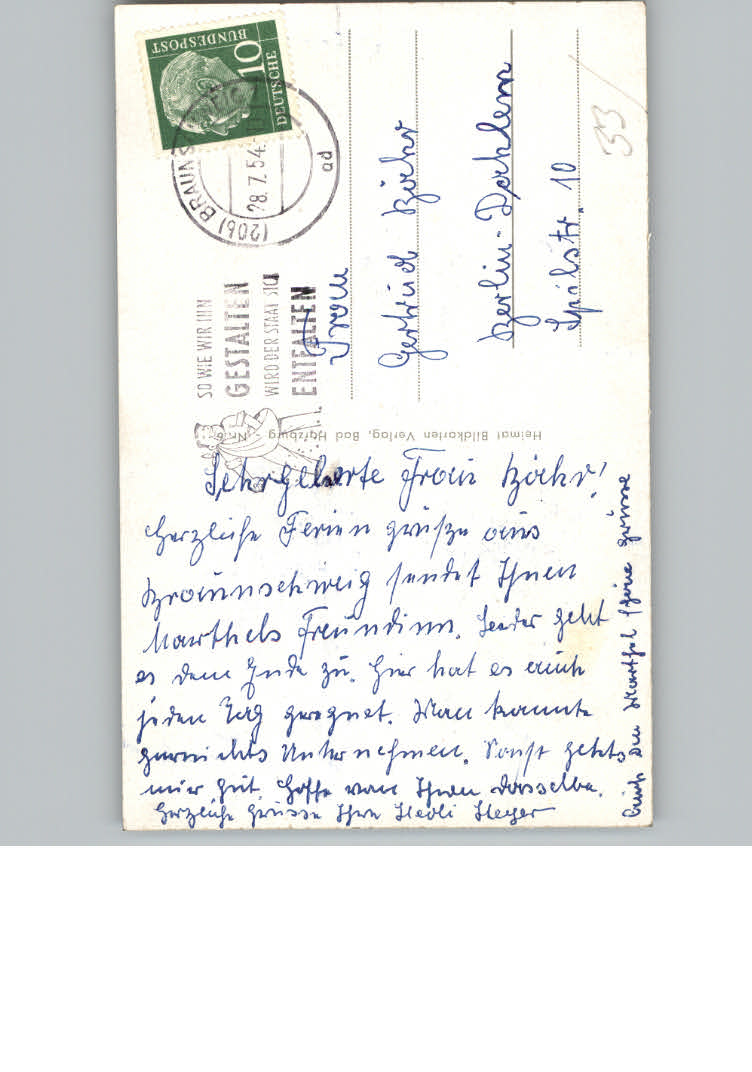 DEUTSCHE
BUNDESPOST
10
(20b) BRAUNS
28.7.54.
ad
SO WIE WIR IHN
GESTALTEN
WIRD DER STAAT SICH
ENTFALTEN
Frau
Gertrud
Berlin-Dahlem
10
33
Heimat Bildkarten Verlag, Bad Harzburg
Sehr geherte Frau
Herzliche Ferien grüße aus
Braunschweig sendet Ihnen
Marthels Freundinn. Leider geht
es dem Ende zu. Hier hat es auch
jeden Tag geregnet. Man kannte
garnichts Unternehmen. Sonst gehts
mir gut. Hoffe von Ihnen dasselbe.
Herzliche Grüsse Ihre Hedli
Auch an Marthel schöne Grüsse